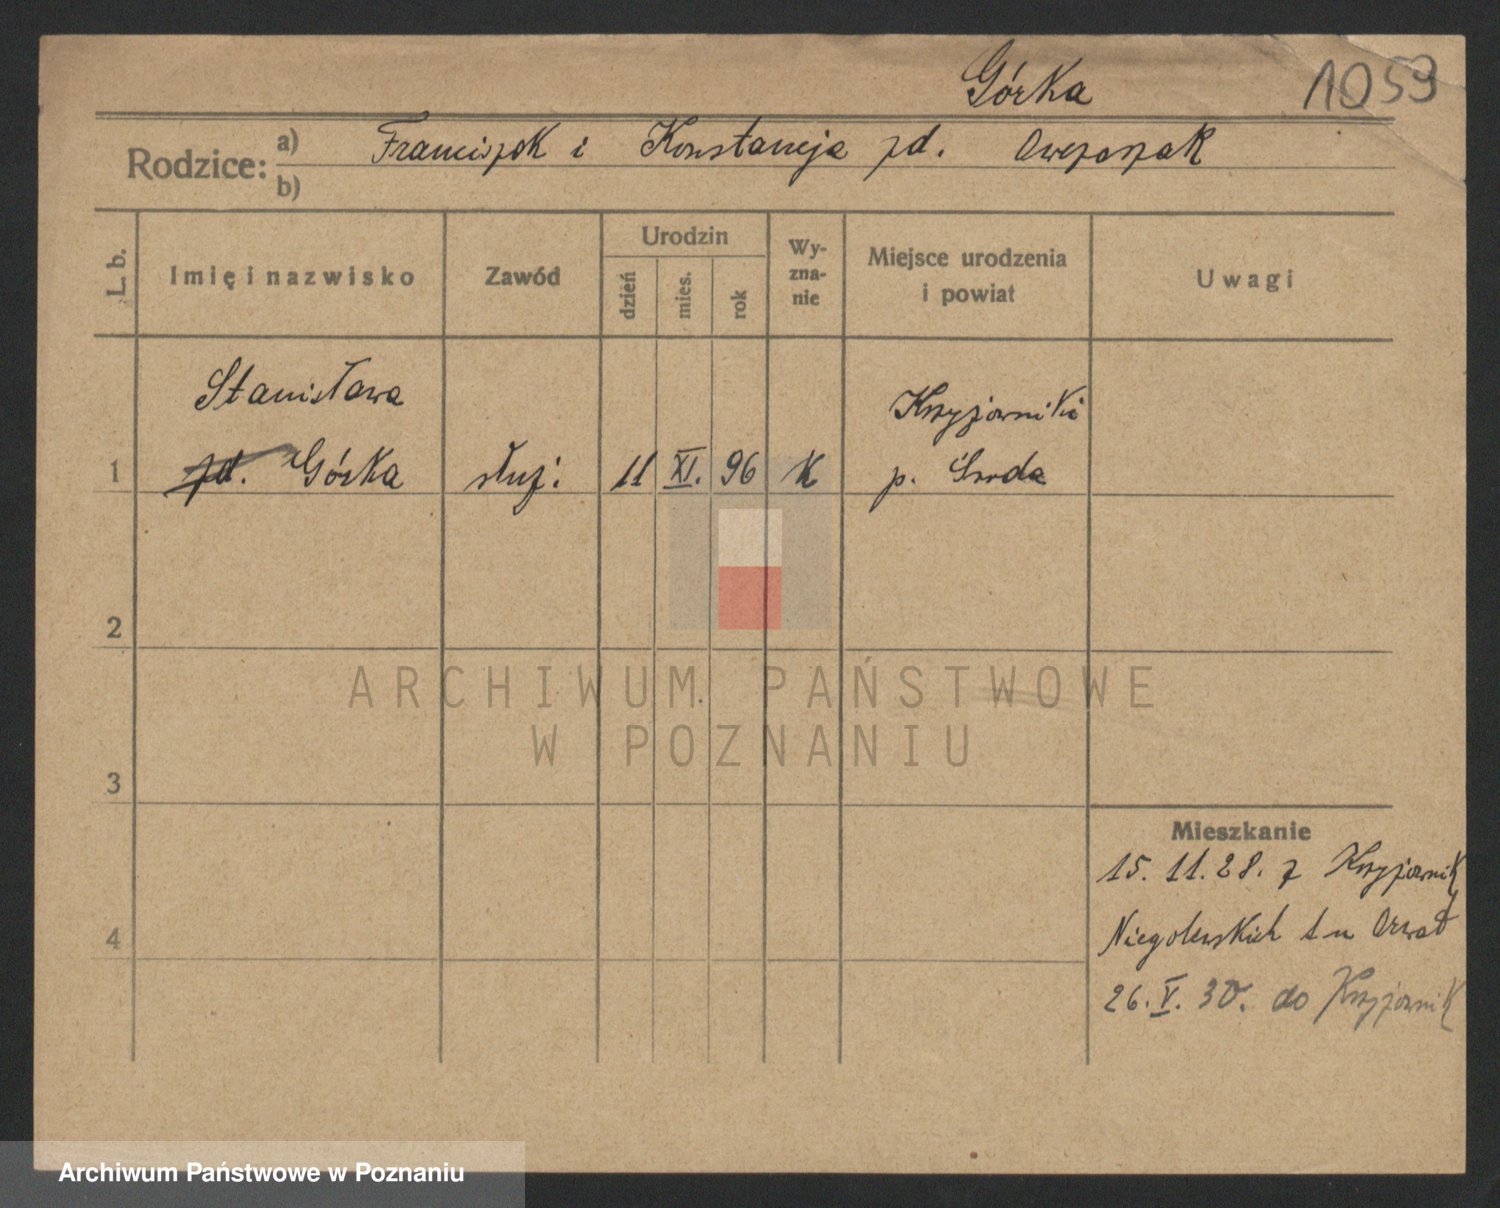 Górka
1059
Rodzice: a) Franciszek i Konstancja zd. Owczarzak
b)
L. b.
Imię i nazwisko
Zawód
Urodzin
dzień
mies.
rok
Wy-
zna-
nie
Miejsce urodzenia
i powiat
Uwagi
Stanisława
zd. Górka
1
służ.
11
XI.
96
K
Krzyżowniki
p. Środa
2
3
4
Mieszkanie
15. 11. 28. z Krzyżownik
Niegolewskich
26. V. 30. do Krzyżownik
ARCHIWUM PAŃSTWOWE
W POZNANIU
Archiwum Państwowe w Poznaniu